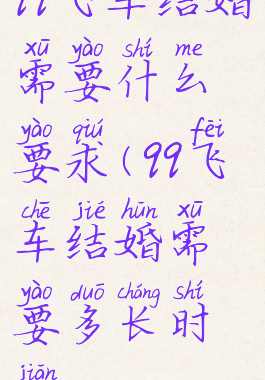 99飞车结婚
xū yào shí me
需要什么
yào qiú fēi
要求(99飞
chē jié hūn xū
车结婚需
yào duō cháng shí
要多长时
jiān